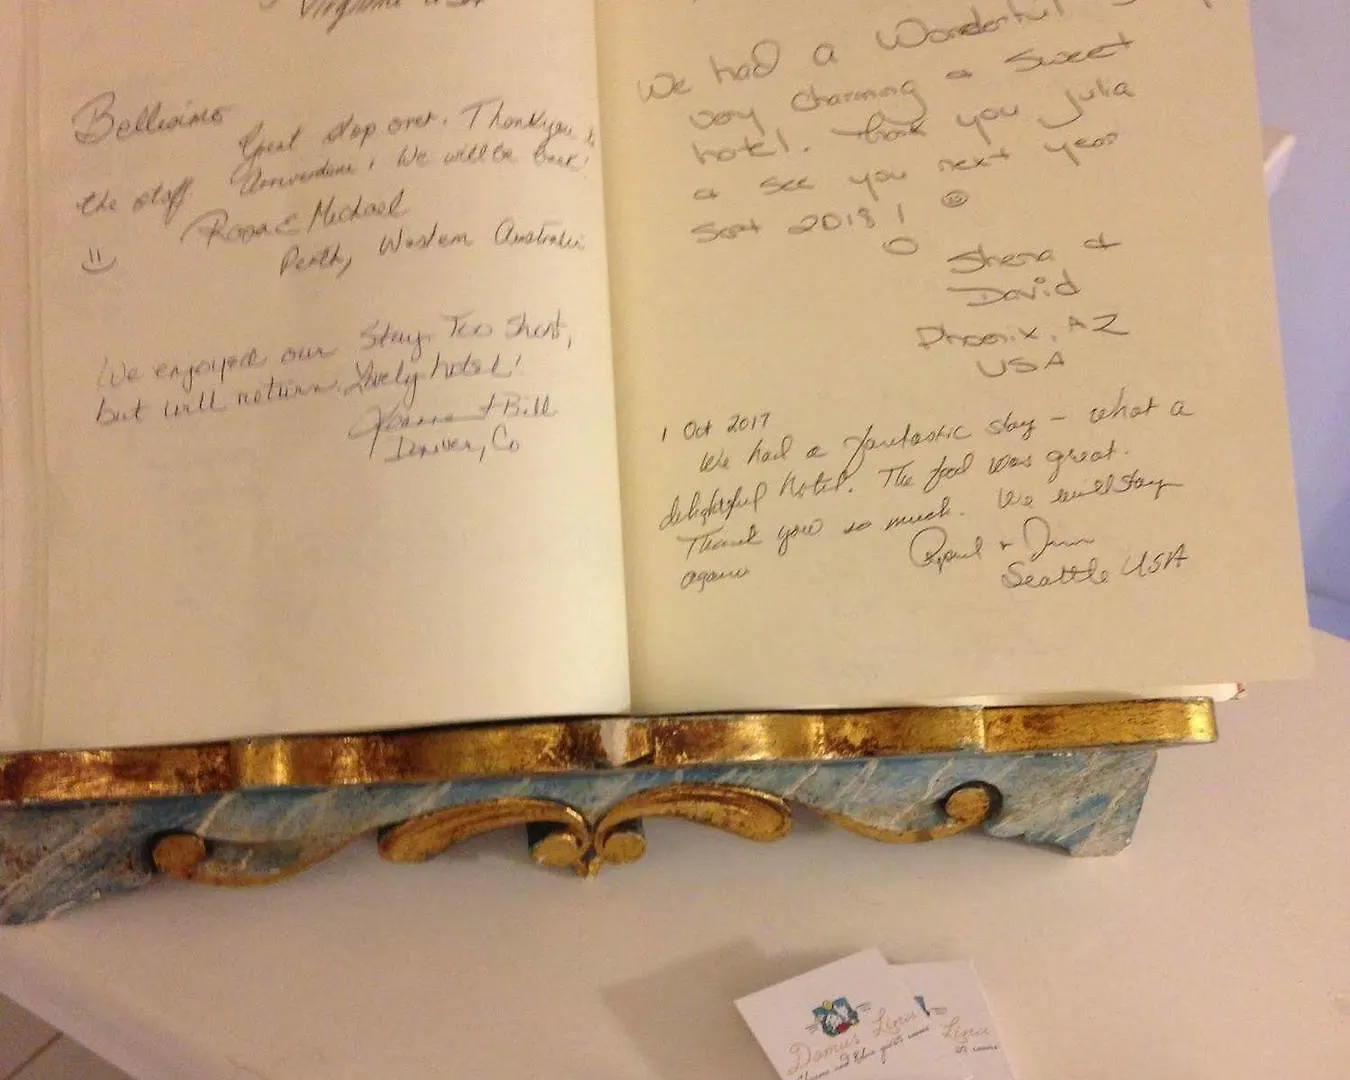 USA
Bellissimo
Great stop over. Thankyou to
the staff. Arriverderci! We will be back!
Rosa & Michael
Perth, Western Australia
We enjoyed our Stay. Too Short,
but will return. Lovely hotel!
+ Bill
Denver, Co
We had a Wonderful
very charming a sweet
hotel. thank you Julia
a see you next year
Sept 2018!
Shena +
David
Phoenix, AZ
USA
1 Oct 2017
We had a fantastic stay - what a
delightful hotel. The food was great.
Thank you so much. We will stay
again
Seattle USA
Domus Lina
Lina